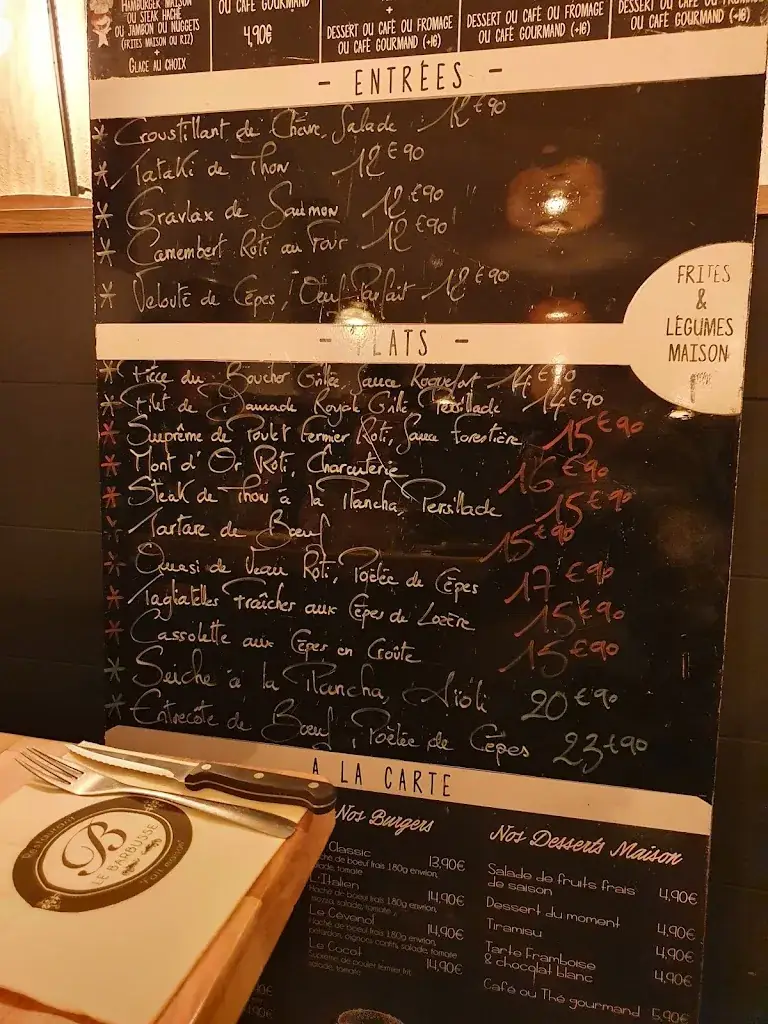 HAMBURGER MAISON
OU STEAK HACHÉ
OU JAMBON OU NUGGETS
(FRITES MAISON OU RIZ)
+
GLACE AU CHOIX
OU CAFÉ GOURMAND
4,90€
+
DESSERT OU CAFÉ OU FROMAGE
OU CAFÉ GOURMAND (+1€)
DESSERT OU CAFÉ OU FROMAGE
OU CAFÉ GOURMAND (+1€)
DESSERT OU CAFÉ OU FROMAGE
OU CAFÉ GOURMAND (+1€)
- ENTRÉES -
* Croustillant de Chèvre, Salade 12€90
* Tataki de Thon 12€90
* Gravlax de Saumon 12€90
* Camembert Roti au Four 12€90
* Velouté de Cèpes, Oeuf Parfait 12€90
FRITES
&
LÉGUMES
MAISON
- PLATS -
* Pièce du Boucher Grillée, Sauce Roquefort 14€90
* Filet de Daurade Royale Grillé Persillade 14€90
* Suprême de Poulet Fermier Roti, Sauce Forestière 15€90
* Mont d'Or Roti, Charcuterie 16€90
* Steak de Thon à la Plancha, Persillade 15€90
* Tartare de Bœuf 15€90
* Quasi de Veau Roti, Poêlée de Cèpes 17€90
* Tagliatelles Fraîches aux Cèpes de Lozère 15€90
* Cassolette aux Cèpes en Croûte 15€90
* Seiche à la Plancha, Aïoli 20€90
* Entrecôte de Bœuf, Poêlée de Cèpes 23€90
A LA CARTE
Nos Burgers
Classic 13,90€
haché de boeuf frais 180g environ,
salade, tomate
L'Italien 14,90€
Haché de boeuf frais 180g environ,
mozza, salade, tomate
Le Cévenol 14,90€
Haché de boeuf frais 180g environ,
pélardon, oignons confits, salade, tomate
Le Cocot 14,90€
Suprême de poulet fermier frit,
salade, tomate
Nos Desserts Maison
Salade de fruits frais
de saison 4,90€
Dessert du moment 4,90€
Tiramisu 4,90€
Tarte Framboise
& chocolat blanc 4,90€
Café ou Thé gourmand 5,90€
90€
4,90€
RESTAURANT
B
LE BARBUSSE